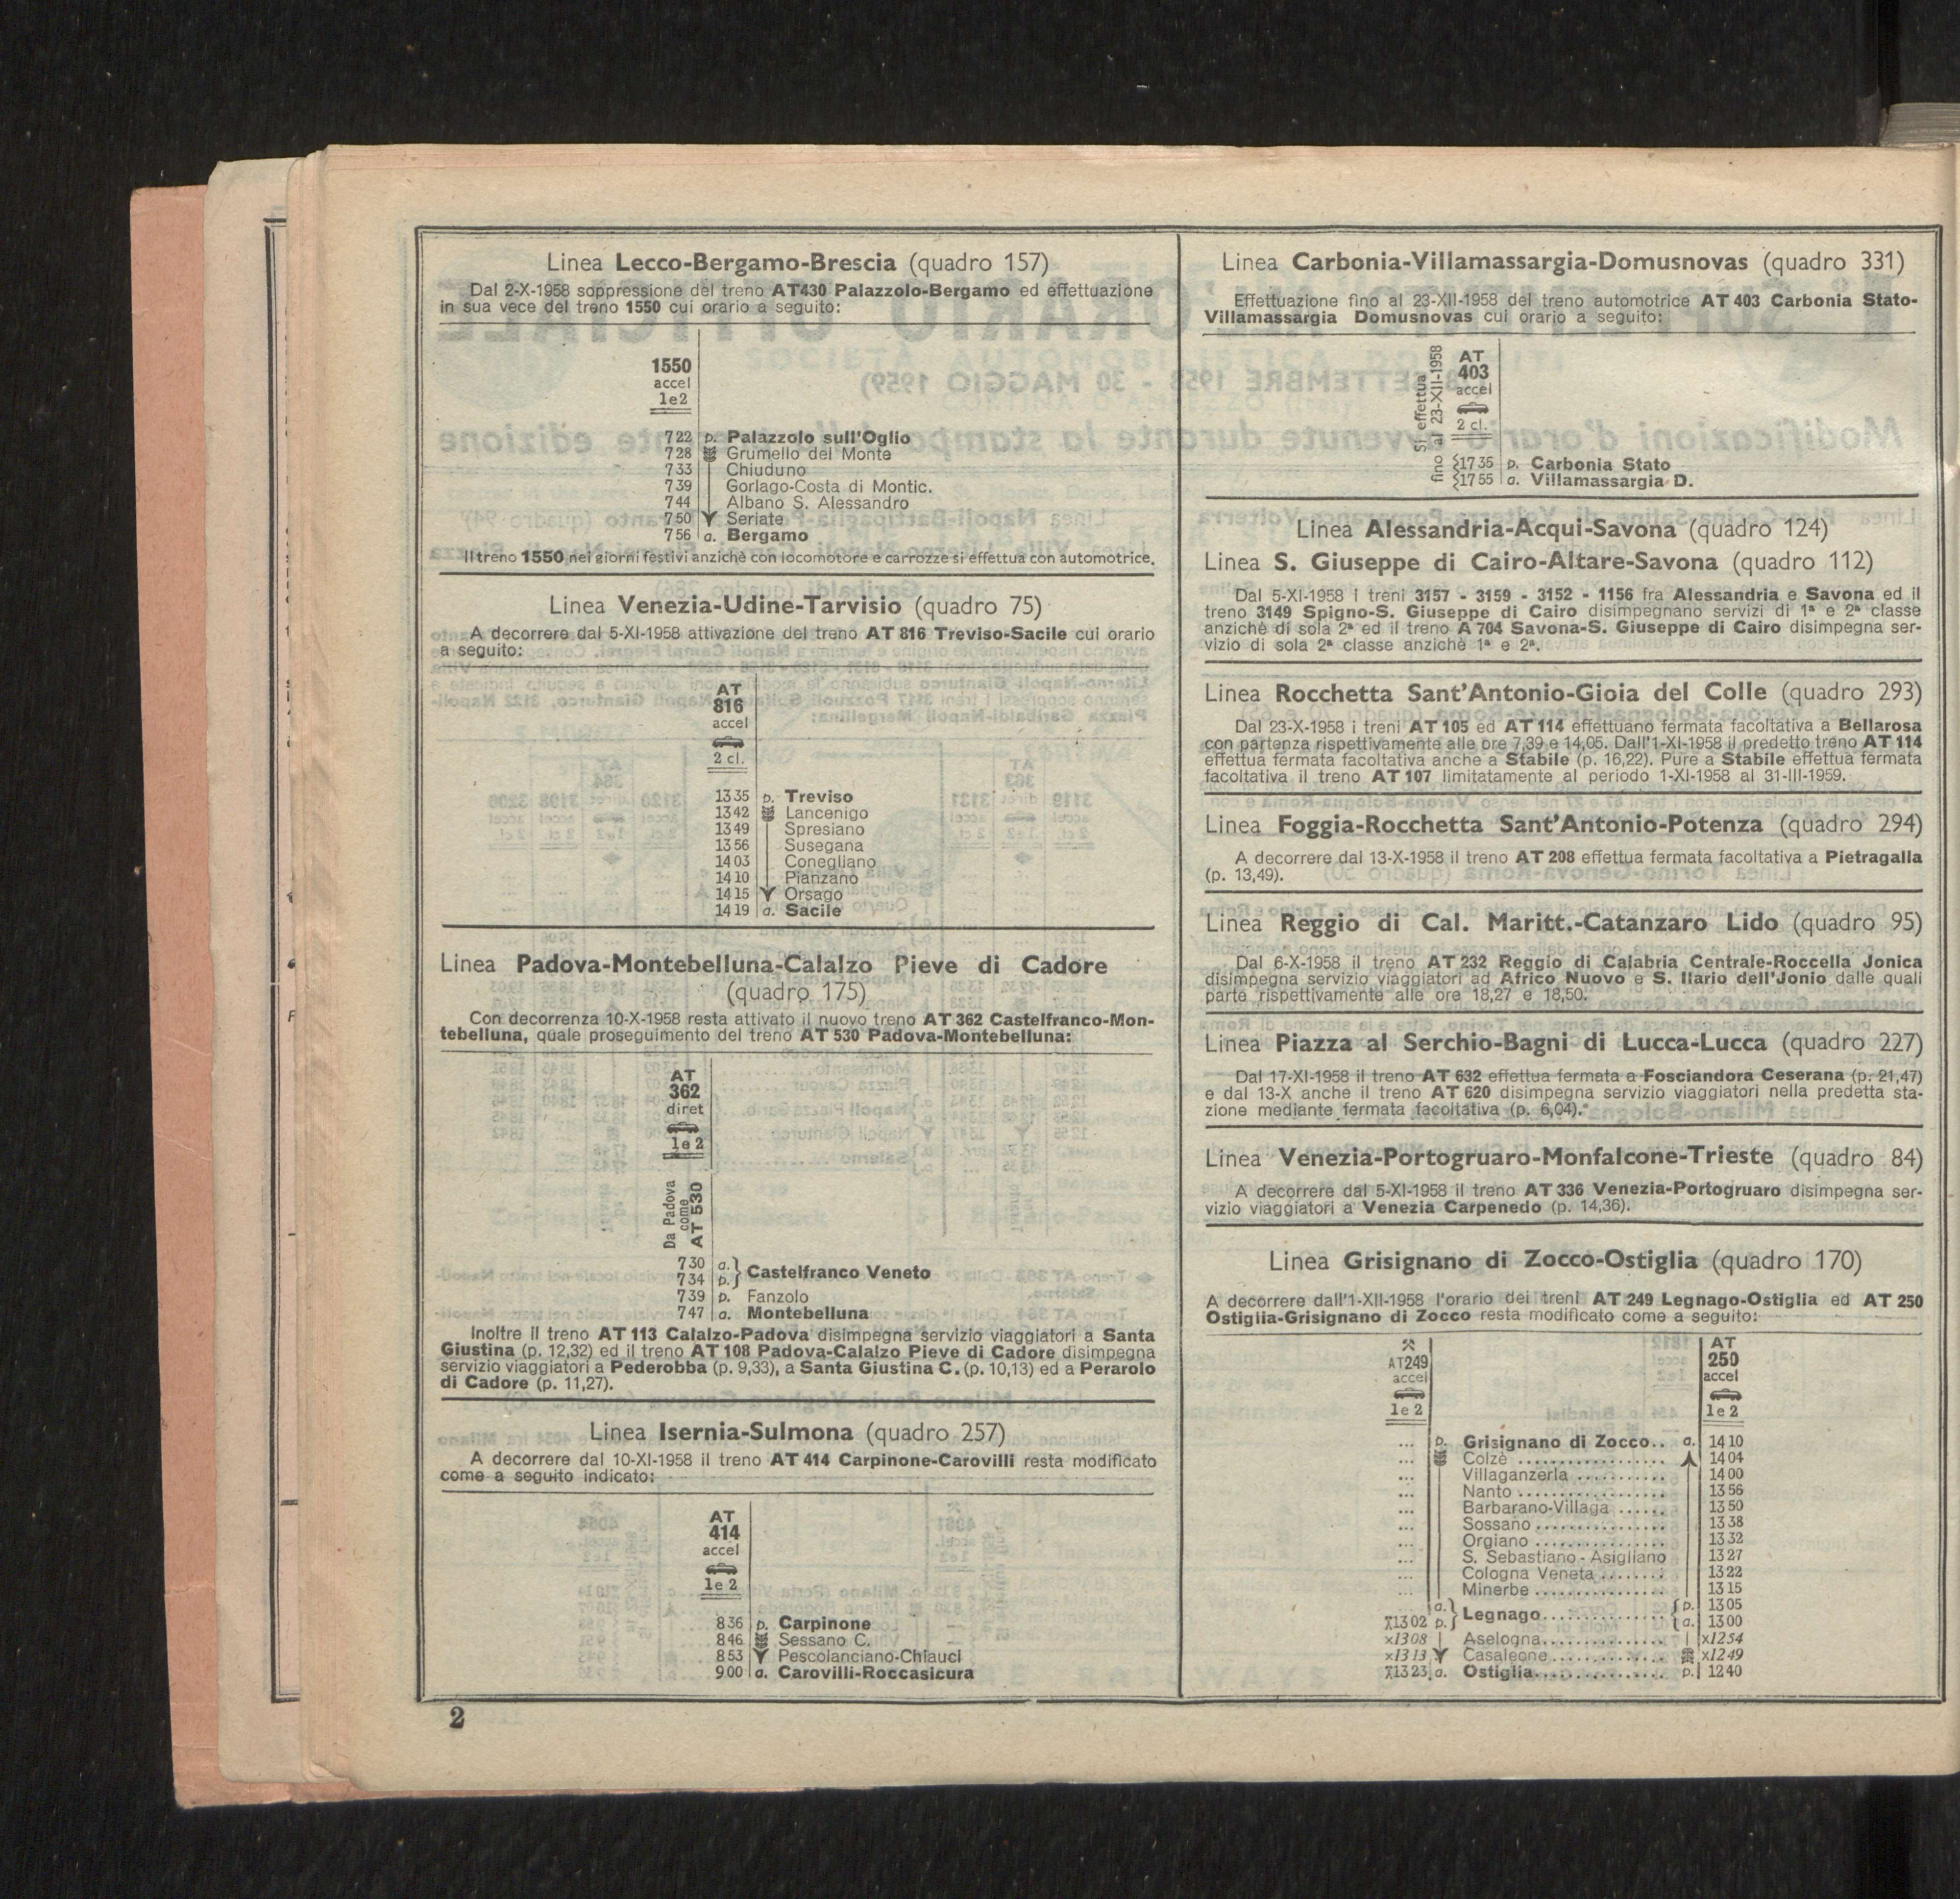 Linea Lecco-Bergamo-Brescia (quadro 157)
Dal 2-X-1958 soppressione del treno AT430 Palazzolo-Bergamo ed effettuazione
in sua vece del treno 1550 cui orario a seguito:
1550
accel
1e2
7 22 p. Palazzolo sull'Oglio
7 28 Grumello del Monte
7 33 Chiuduno
7 39 Gorlago-Costa di Montic.
7 44 Albano S. Alessandro
7 50 Seriate
7 56 a. Bergamo
Il treno 1550 nei giorni festivi anzichè con locomotore e carrozze si effettua con automotrice.
Linea Venezia-Udine-Tarvisio (quadro 75)
A decorrere dal 5-XI-1958 attivazione del treno AT 816 Treviso-Sacile cui orario
a seguito:
AT
816
accel
2 cl.
13 35 p. Treviso
13 42 Lancenigo
13 49 Spresiano
13 56 Susegana
14 03 Conegliano
14 10 Pianzano
14 15 Orsago
14 19 a. Sacile
Linea Padova-Montebelluna-Calalzo Pieve di Cadore
(quadro 175)
Con decorrenza 10-X-1958 resta attivato il nuovo treno AT 362 Castelfranco-Mon-
tebelluna, quale proseguimento del treno AT 530 Padova-Montebelluna:
AT
362
diret
1e 2
Da Padova
come
AT 530
7 30 a. } Castelfranco Veneto
7 34 p.
7 39 p. Fanzolo
7 47 a. Montebelluna
Inoltre il treno AT 113 Calalzo-Padova disimpegna servizio viaggiatori a Santa
Giustina (p. 12,32) ed il treno AT 108 Padova-Calalzo Pieve di Cadore disimpegna
servizio viaggiatori a Pederobba (p. 9,33), a Santa Giustina C. (p. 10,13) ed a Perarolo
di Cadore (p. 11,27).
Linea Isernia-Sulmona (quadro 257)
A decorrere dal 10-XI-1958 il treno AT 414 Carpinone-Carovilli resta modificato
come a seguito indicato:
AT
414
accel
1e 2
8 36 p. Carpinone
8 46 Sessano C.
8 53 Pescolanciano-Chiauci
9 00 a. Carovilli-Roccasicura
2
Linea Carbonia-Villamassargia-Domusnovas (quadro 331)
Effettuazione fino al 23-XII-1958 del treno automotrice AT 403 Carbonia Stato-
Villamassargia Domusnovas cui orario a seguito:
Si effettua
fino al 23-XII-1958
AT
403
accel
2 cl.
17 35 p. Carbonia Stato
17 55 a. Villamassargia D.
Linea Alessandria-Acqui-Savona (quadro 124)
Linea S. Giuseppe di Cairo-Altare-Savona (quadro 112)
Dal 5-XI-1958 i treni 3157 - 3159 - 3152 - 1156 fra Alessandria e Savona ed il
treno 3149 Spigno-S. Giuseppe di Cairo disimpegnano servizi di 1ª e 2ª classe
anzichè di sola 2ª ed il treno A 704 Savona-S. Giuseppe di Cairo disimpegna ser-
vizio di sola 2ª classe anzichè 1ª e 2ª.
Linea Rocchetta Sant'Antonio-Gioia del Colle (quadro 293)
Dal 23-X-1958 i treni AT 105 ed AT 114 effettuano fermata facoltativa a Bellarosa
con partenza rispettivamente alle ore 7,39 e 14,05. Dall'1-XI-1958 il predetto treno AT 114
effettua fermata facoltativa anche a Stabile (p. 16,22). Pure a Stabile effettua fermata
facoltativa il treno AT 107 limitatamente al periodo 1-XI-1958 al 31-III-1959.
Linea Foggia-Rocchetta Sant'Antonio-Potenza (quadro 294)
A decorrere dal 13-X-1958 il treno AT 208 effettua fermata facoltativa a Pietragalla
(p. 13,49).
Linea Reggio di Cal. Maritt.-Catanzaro Lido (quadro 95)
Dal 6-X-1958 il treno AT 232 Reggio di Calabria Centrale-Roccella Jonica
disimpegna servizio viaggiatori ad Africo Nuovo e S. Ilario dell'Jonio dalle quali
parte rispettivamente alle ore 18,27 e 18,50.
Linea Piazza al Serchio-Bagni di Lucca-Lucca (quadro 227)
Dal 17-XI-1958 il treno AT 632 effettua fermata a Fosciandora Ceserana (p. 21,47)
e dal 13-X anche il treno AT 620 disimpegna servizio viaggiatori nella predetta sta-
zione mediante fermata facoltativa (p. 6,04).
Linea Venezia-Portogruaro-Monfalcone-Trieste (quadro 84)
A decorrere dal 5-XI-1958 il treno AT 336 Venezia-Portogruaro disimpegna ser-
vizio viaggiatori a Venezia Carpenedo (p. 14,36).
Linea Grisignano di Zocco-Ostiglia (quadro 170)
A decorrere dall'1-XII-1958 l'orario dei treni AT 249 Legnago-Ostiglia ed AT 250
Ostiglia-Grisignano di Zocco resta modificato come a seguito:
⚒ AT
AT249 250
accel accel
1e 2 1e 2
... p. Grisignano di Zocco.. a. 14 10
... Colzè .................. 14 04
... Villaganzerla ........... 14 00
... Nanto .................. 13 56
... Barbarano-Villaga ...... 13 50
... Sossano ................ 13 38
... Orgiano ................ 13 32
... S. Sebastiano - Asigliano 13 27
... Cologna Veneta ........ 13 22
... Minerbe ................ 13 15
a. } Legnago............... { p. 13 05
⚒13 02 p. a. 13 00
×13 08 Aselogna............... ×12 54
×13 13 Casaleone.............. ×12 49
⚒13 23 a. Ostiglia................ p. 12 40